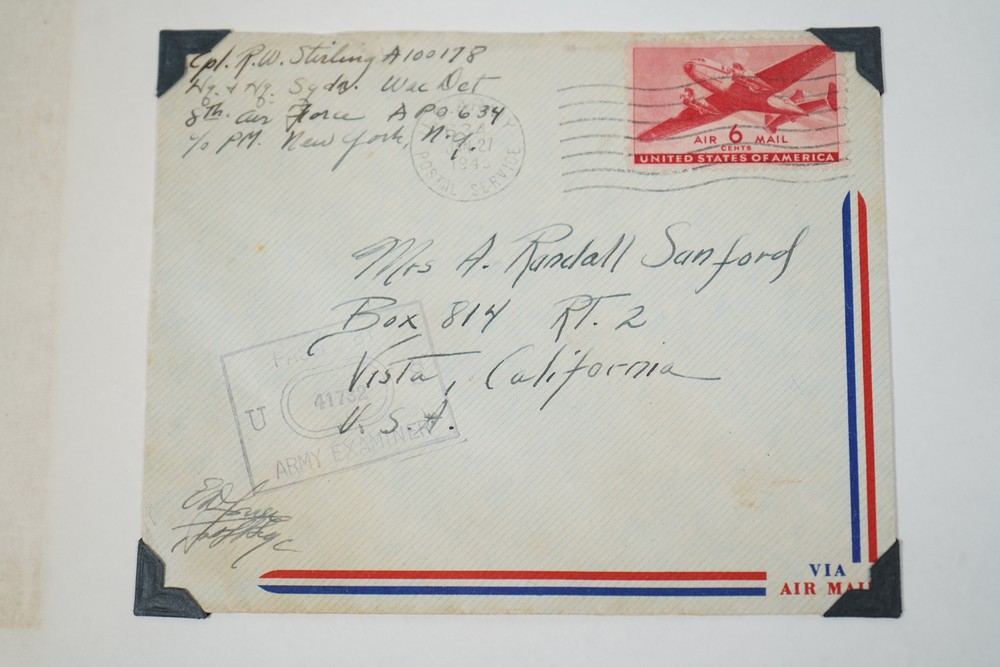 Cpl. R.W. Stirling A100178
Hq. & Hq. Sqdn. Wac Det
8th. Air Force APO 634
c/o PM. New York, N.Y.
21
194
POSTAL SERVICE
AIR 6 MAIL
CENTS
UNITED STATES OF AMERICA
Mrs A. Randall Sanford
Box 814 RT. 2
Vista, California
U.S.A.
U 41732
ARMY EXAMINER
VIA
AIR MAIL